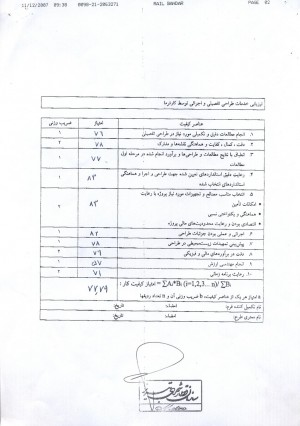 11/12/2007 09:30 0098-21-2053271 RAIL BANDAR PAGE 02
ارزیابی خدمات طراحی تفصیلی و اجرائی توسط کارفرما
عناصر کیفیت امتیاز ضریب وزنی
۱. انجام مطالعات دقیق و تکمیلی مورد نیاز در طراحی تفصیلی ۷۶ ۱
۲. دقت، کمال، کفایت و هماهنگی نقشه‌ها و مدارک ۷۸ ۲
۳. انطباق با نتایج مطالعات و طراحی‌ها و برآورد انجام شده در مرحله اول مطالعات ۷۷ ۱
۴. رعایت دقیق استانداردهای تعیین شده جهت طراحی و اجرا و هماهنگی استانداردهای انتخاب شده ۸۳
۵. انتخاب مناسب مصالح و تجهیزات مورد نیاز پروژه با رعایت ۸۳ ۲
امکانات تأمین
هماهنگی و یکنواختی نسبی
اقتصادی بودن و رعایت محدودیت‌های مالی پروژه
۶. اجرائی و عملی بودن جزئیات طراحی ۸۲ ۱
۷. پیش‌بینی تمهیدات زیست‌محیطی در طراحی ۷۸ ۱
۸. دقت در برآوردهای مالی و فیزیکی ۷۶ ۲
۹. انجام مهندسی ارزش ۱
۱۰. رعایت برنامه زمانی ۷۱ ۲
امتیاز کیفیت کار: = ∑Ai*Bi (i=1,2,3... n)/ ∑Bi ۷۷,۷۹
A امتیاز هر یک از عناصر کیفیت، B ضریب وزنی آن و n تعداد ردیفها
نام تکمیل کننده فرم: امضاء: تاریخ:
نام مجری طرح: امضاء: تاریخ: